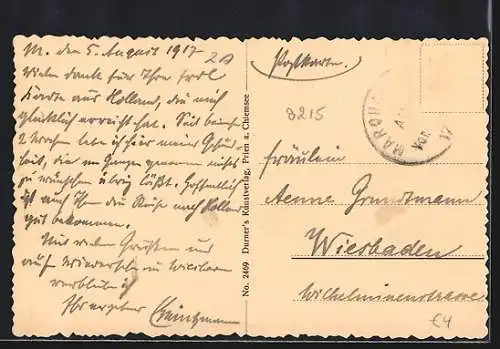 M. den 5. August 1917
Vielen Dank für Ihre frdl.
Karte aus Holland, die mich
glücklich erreicht hat. Seit beinahe
2 Wochen lebe ich hier meiner Gesund-
heit, die im Ganzen genommen nichts
zu wünschen übrig läßt. Hoffentlich
ist auch Ihnen die Reise nach Holland
gut bekommen.
Mit vielen Grüßen und
auf Wiedersehen in Wiesbaden
verbleibe ich
Ihr ergebener
No. 2469 Durner's Kunstverlag, Prien a. Chiemsee
Postkarte.
3215
MARQUA
Vor. 17
Fräulein
Aenne Grundmann
Wiesbaden
Wilhelminenstrasse
€4